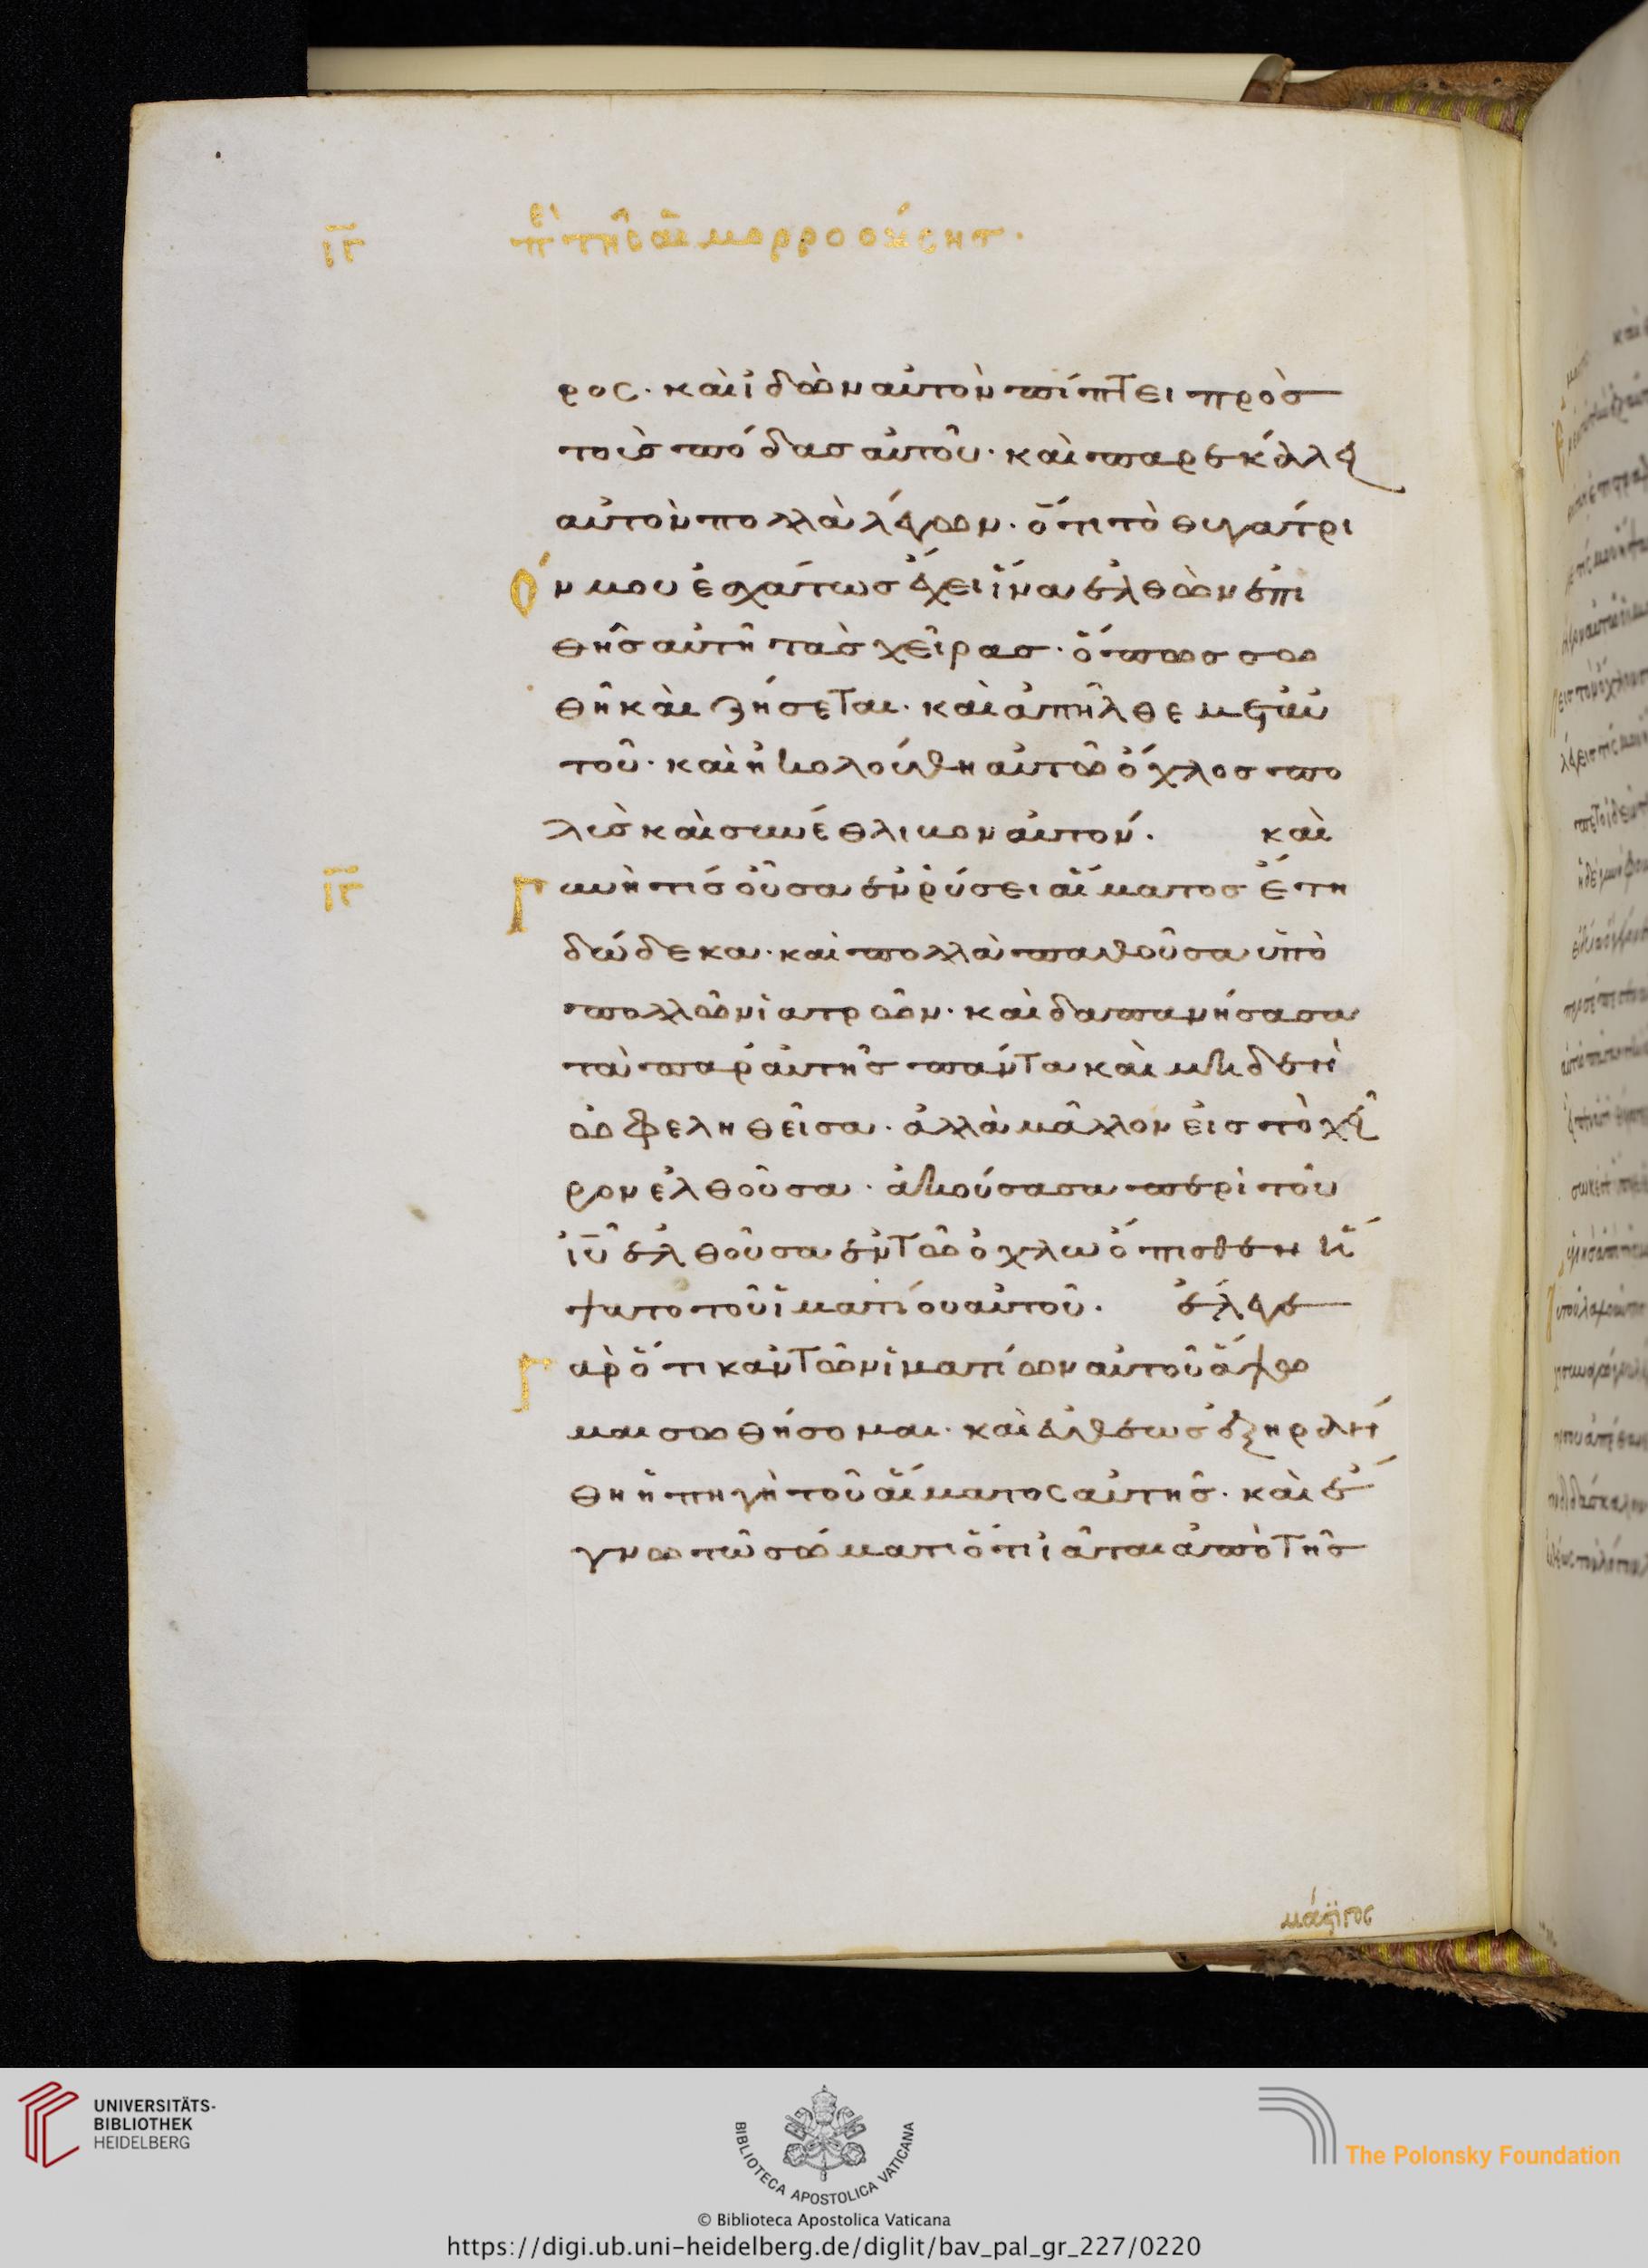 ιγ περὶ τῆς αἱμορροούσης.
ρος· καὶ ἰδὼν αὐτὸν πίπτει πρὸς
τοὺς πόδας αὐτοῦ· καὶ παρεκάλει
αὐτὸν πολλὰ λέγων· ὅτι τὸ θυγάτρι
όν μου ἐσχάτως ἔχει ἵνα ἐλθὼν ἐπι
θῆς αὐτῆ τὰς χεῖρας· ὅπως σω
θῆ καὶ ζήσεται· καὶ ἀπῆλθε μετ' αὐ
τοῦ· καὶ ἠκολούθη αὐτῶ ὄχλος πο
λὺς καὶ συνέθλιβον αὐτόν. καὶ
ιγ Γυνὴ τίς οὖσα ἐν ῥύσει αἵματος ἔτη
δώδεκα· καὶ πολλὰ παθοῦσα ὑπὸ
πολλῶν ἰατρῶν· καὶ δαπανήσασα
τὰ παρ' αὐτῆς πάντα καὶ μηδὲν
ὠφεληθεῖσα· ἀλλὰ μᾶλλον εἰς τὸ χεῖ
ρον ἐλθοῦσα· ἀκούσασα περὶ τοῦ
ἰῦ ἐλθοῦσα ἐν τῶ ὄχλω ὄπισθεν ἥ
ψατο τοῦ ἱματίου αὐτοῦ. ἔλεγε
Γὰρ ὅτι κἂν τῶν ἱματίων αὐτοῦ ἅψω
μαι σωθήσομαι· καὶ εὐθέως ἐξηράν
θη ἡ πηγὴ τοῦ αἵματος αὐτῆς· καὶ ἔ
γνω τῶ σώματι ὅτι ἴαται ἀπὸ τῆς
μάστιγος
UNIVERSITÄTS-
BIBLIOTHEK
HEIDELBERG
BIBLIOTECA APOSTOLICA VATICANA
The Polonsky Foundation
© Biblioteca Apostolica Vaticana
https://digi.ub.uni-heidelberg.de/diglit/bav_pal_gr_227/0220